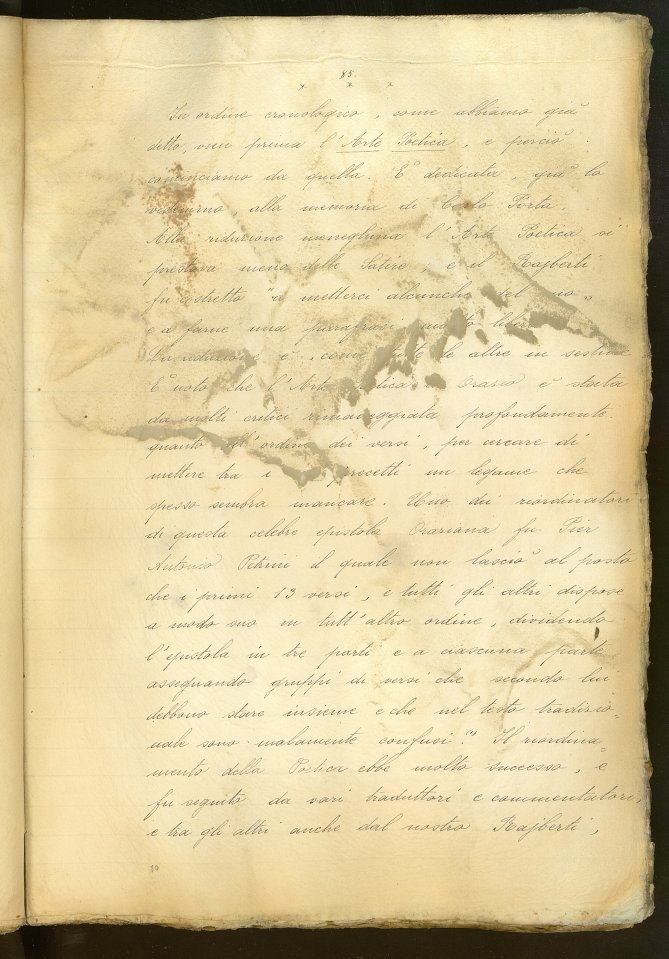 85.
* * *
In ordine cronologico, come abbiamo già
detto, vien prima l'Arte Poetica, e perciò
cominciamo da quella. E' dedicata, già lo
vedemmo alla memoria di Carlo Porta.
Alla riduzione meneghina l'Arte Poetica si
prestava meno delle Satire, e il Rajberti
fu costretto "a metterci alcunchè del suo"
e a farne una parafrasi molto libera
La riduzione è, come tutte le altre in sestine
E' noto che l'Arte Poetica di Orazio è stata
da molti critici rimaneggiata profondamente
quanto all'ordine dei versi, per cercare di
mettere tra i precetti un legame che
spesso sembra mancare. Uno dei riordinatori
di questa celebre epistola Oraziana fu Pier
Antonio Petrini il quale non lasciò al posto
che i primi 13 versi, e tutti gli altri dispose
a modo suo in tutt'altro ordine, dividendo
l'epistola in tre parti e a ciascuna parte
assegnando gruppi di versi che secondo lui
debbono stare insieme e che nel testo tradizio-
nale sono malamente confusi. (1) Il riordina-
mento della Poetica ebbe molto successo, e
fu seguito da vari traduttori e commentatori,
e tra gli altri anche dal nostro Rajberti,
10